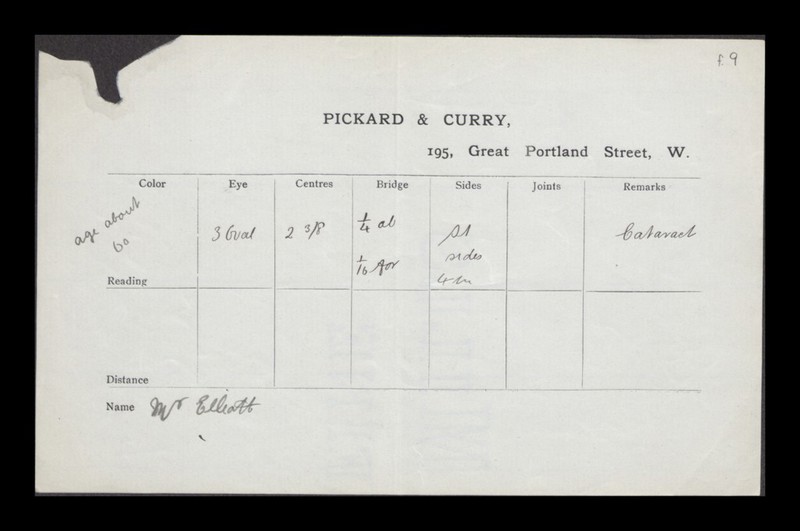 f. 9
PICKARD & CURRY,
195, Great Portland Street, W.
Color Eye Centres Bridge Sides Joints Remarks
age about
60
3 Oval 2 3/8 1/4 ab St Cataract
1/16 for sides
4 in
Reading
Distance
Name Mr Elliott